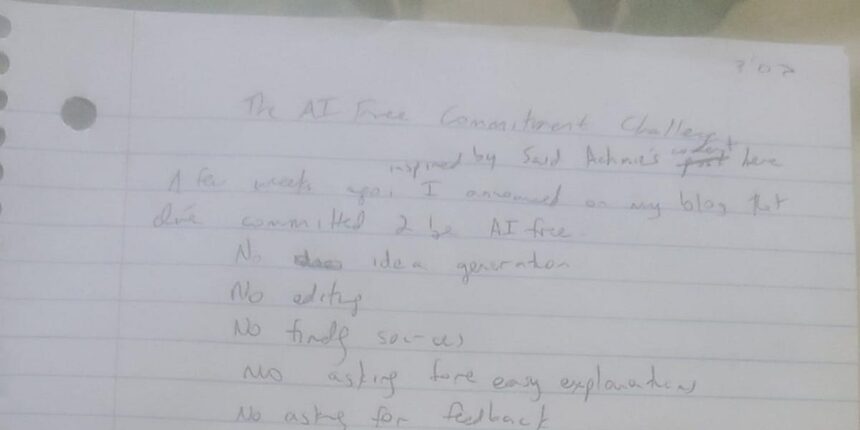 3:07
The AI Free Commitment Challenge
inspired by Said Achmiz's here
A few weeks ago, I announced on my blog that
I've committed 2 be AI free.
No idea generation
No editing
No finding sources
No asking fore easy explanations
No asking for feedback